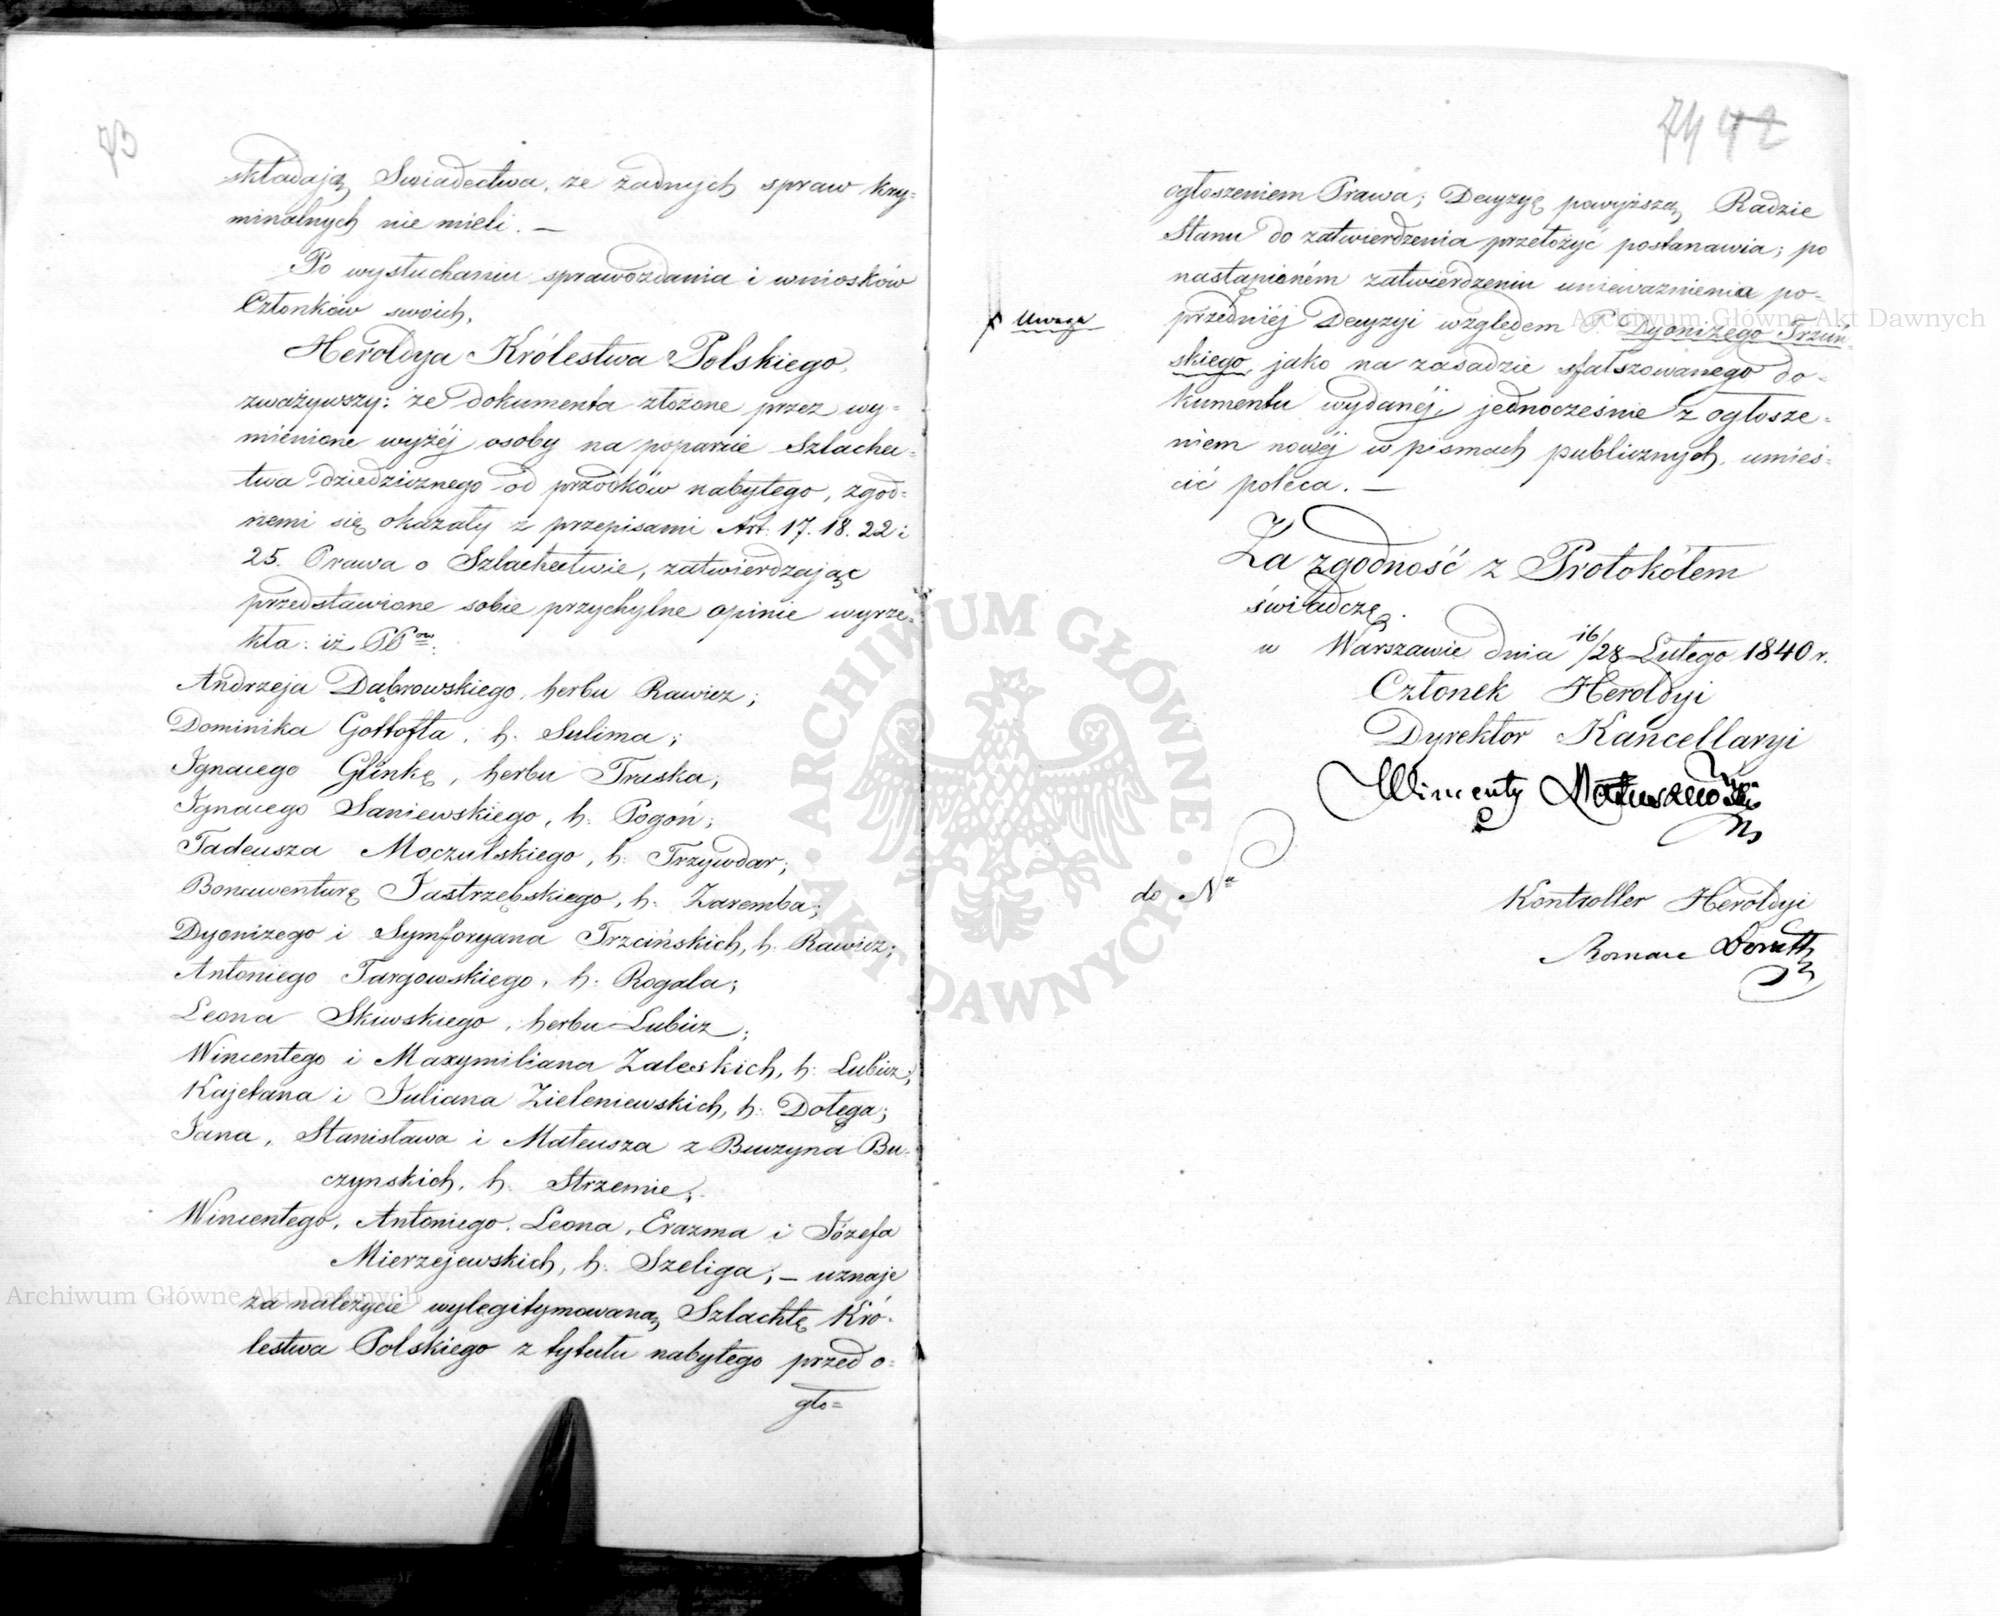 73
składają Swiadectwa, że żadnych spraw kry-
minalnych nie mieli. —
Po wysłuchaniu sprawozdania i wniosków
Członków swoich,
Heroldya Królestwa Polskiego,
zważywszy: że dokumenta złożone przez wy-
mienione wyżéj osoby na poparcie Szlachec-
twa dziedzicznego od przodków nabytego, zgod-
nemi się okazały z przepisami Art. 17. 18. 22 i
25. Prawa o Szlachectwie, zatwierdzając
przedstawione sobie przychylne opinie wyrze-
kła: iż PP.ów:
Andrzeja Dąbrowskiego, herbu Rawicz;
Dominika Gottofta, h. Sulima;
Ignacego Glinkę, herbu Truska;
Ignacego Saniewskiego, h. Pogoń;
Tadeusza Moczulskiego, h. Trzywdar;
Bonawenturę Jastrzębskiego, h. Zaremba;
Dyonizego i Symforyana Trzcińskich, h. Rawicz;
Antoniego Targowskiego, h. Rogala;
Leona Skiwskiego, herbu Lubicz;
Wincentego i Maxymiliana Zaleskich, h. Lubicz;
Kajetana i Juliana Zieleniewskich, h. Dołęga;
Jana, Stanisława i Mateusza z Buczyna Bu-
czynskich, h. Strzemie;
Wincentego, Antoniego, Leona, Erazma i Józefa
Mierzejewskich, h. Szeliga; — uznaje
za należycie wylegitymowaną Szlachtę Kró-
lestwa Polskiego z tytułu nabytego przed o-
gło=
74 72
ogłoszeniem Prawa; Decyzyę powyższą Radzie
Stanu do zatwierdzenia przełożyć postanawia; po
nastąpioném zatwierdzeniu unieważnienia po-
Uwaga
przedniéj Decyzyi względem P. Dyonizego Trzciń-
skiego, jako na zasadzie sfałszowanego do-
kumentu wydanéj, jednocześnie z ogłosze-
niem nowéj w pismach publicznych, umieś-
cić poleca. —
Za zgodność z Protokółem
świadczę.
w Warszawie dnia 16/28 Lutego 1840 r.
Członek Heroldyi
Dyrektor Kancellaryi
Wincenty Matuszewski
do Na
Kontroller Heroldyi
Roman
Archiwum Główne Akt Dawnych
Archiwum Główne Akt Dawnych
ARCHIWUM GŁÓWNE · AKT DAWNYCH ·